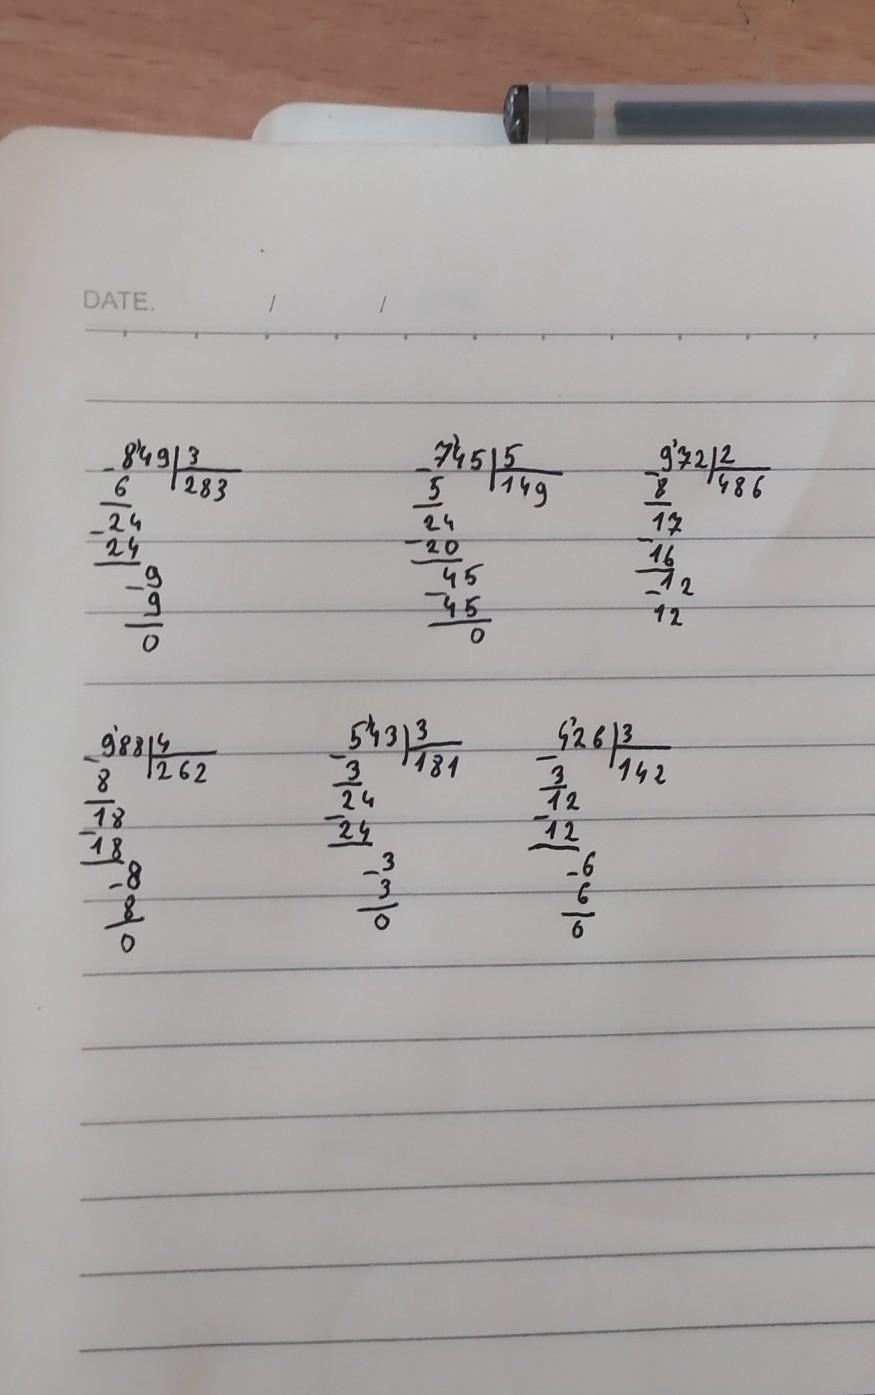 DATE. / /
-8'49 | 3
6 | 283
-24
24
-9
9
0
-7'45 | 5
5 | 149
24
-20
45
-45
0
9'72 | 2
-8 | 486
17
-16
-12
12
-9'88 | 4
8 | 262
-18
18
-8
8
0
-5'43 | 3
3 | 181
24
-24
-3
3
0
-4'26 | 3
3 | 142
12
-12
-6
6
6